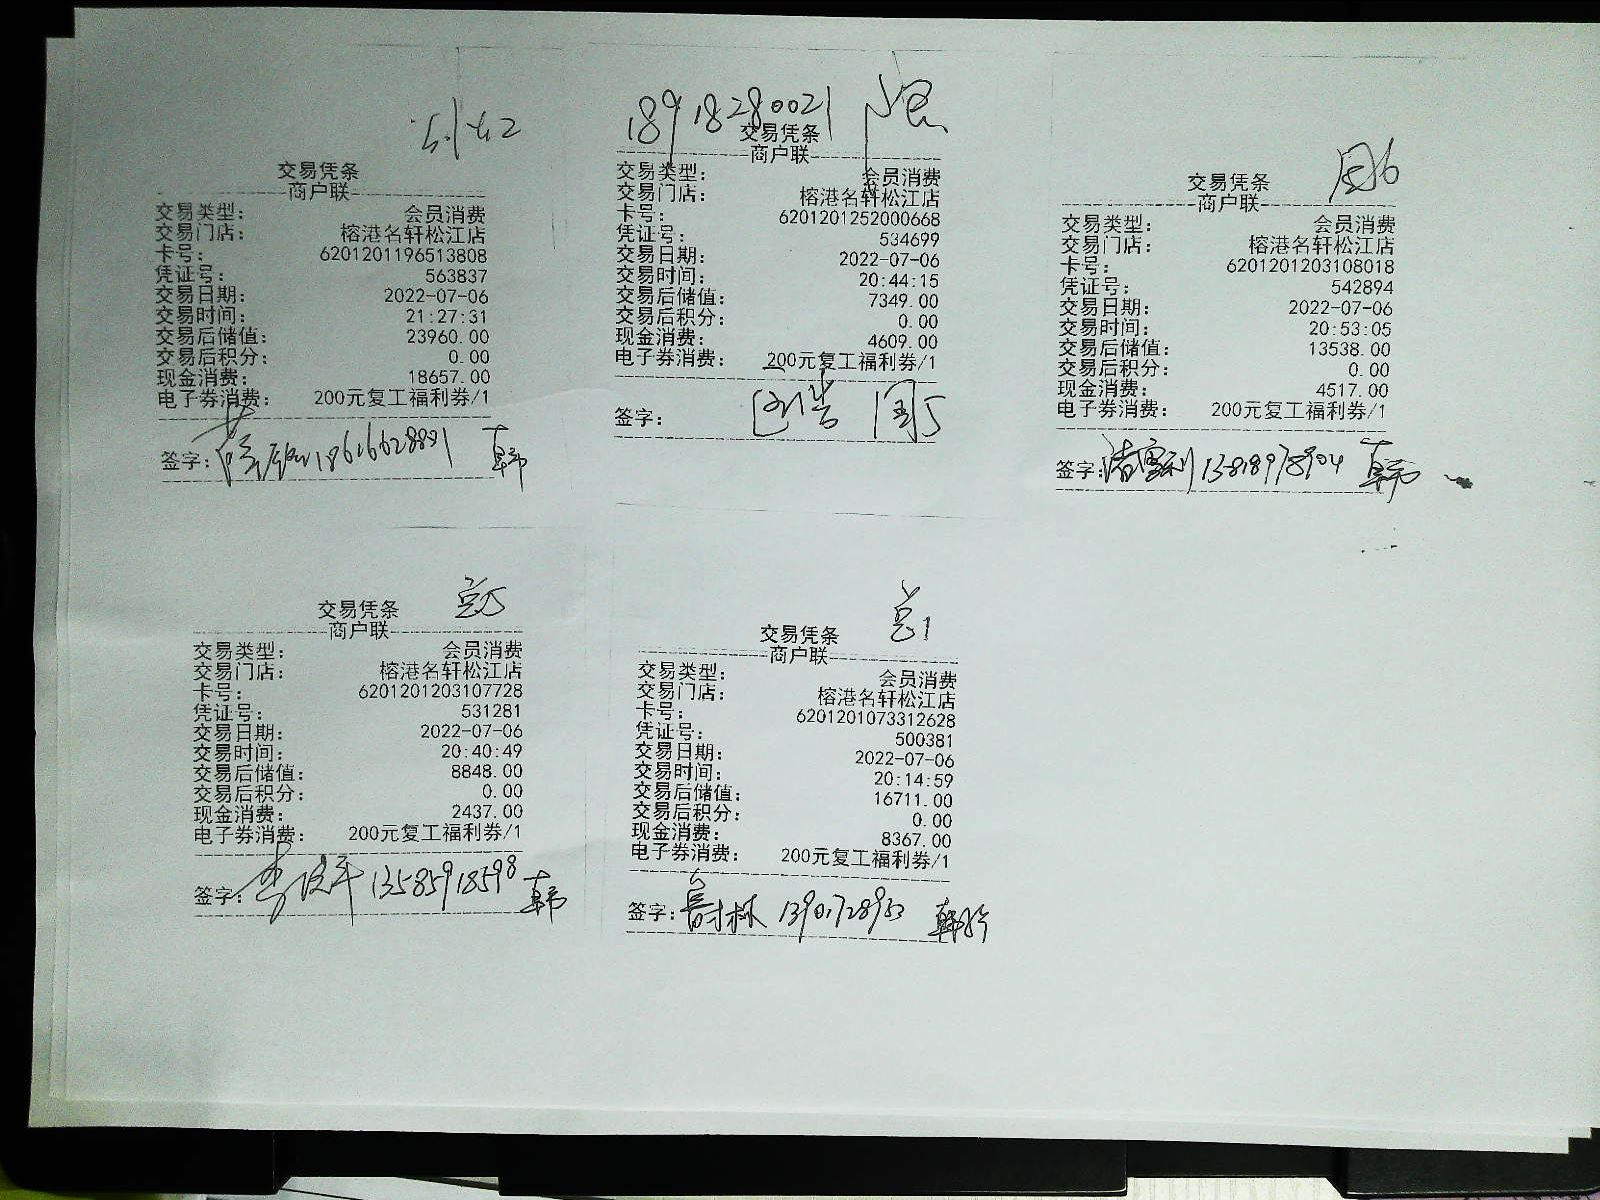 交易凭条
商户联
交易类型： 会员消费
交易门店： 榕港名轩松江店
卡号： 6201201196513808
凭证号： 563837
交易日期： 2022-07-06
交易时间： 21:27:31
交易后储值： 23960.00
交易后积分： 0.00
现金消费： 18657.00
电子券消费： 200元复工福利券/1
签字： 18616628881 韩
18918280021
交易凭条
商户联
交易类型： 会员消费
交易门店： 榕港名轩松江店
卡号： 6201201252000668
凭证号： 534699
交易日期： 2022-07-06
交易时间： 20:44:15
交易后储值： 7349.00
交易后积分： 0.00
现金消费： 4609.00
电子券消费： 200元复工福利券/1
签字：
交易凭条
商户联
交易类型： 会员消费
交易门店： 榕港名轩松江店
卡号： 6201201203108018
凭证号： 542894
交易日期： 2022-07-06
交易时间： 20:53:05
交易后储值： 13538.00
交易后积分： 0.00
现金消费： 4517.00
电子券消费： 200元复工福利券/1
签字： 13818978904 韩
交易凭条
商户联
交易类型： 会员消费
交易门店： 榕港名轩松江店
卡号： 6201201203107728
凭证号： 531281
交易日期： 2022-07-06
交易时间： 20:40:49
交易后储值： 8848.00
交易后积分： 0.00
现金消费： 2437.00
电子券消费： 200元复工福利券/1
签字： 13585918598 韩
总1
交易凭条
商户联
交易类型： 会员消费
交易门店： 榕港名轩松江店
卡号： 6201201073312628
凭证号： 500381
交易日期： 2022-07-06
交易时间： 20:14:59
交易后储值： 16711.00
交易后积分： 0.00
现金消费： 8367.00
电子券消费： 200元复工福利券/1
签字： 13901728953